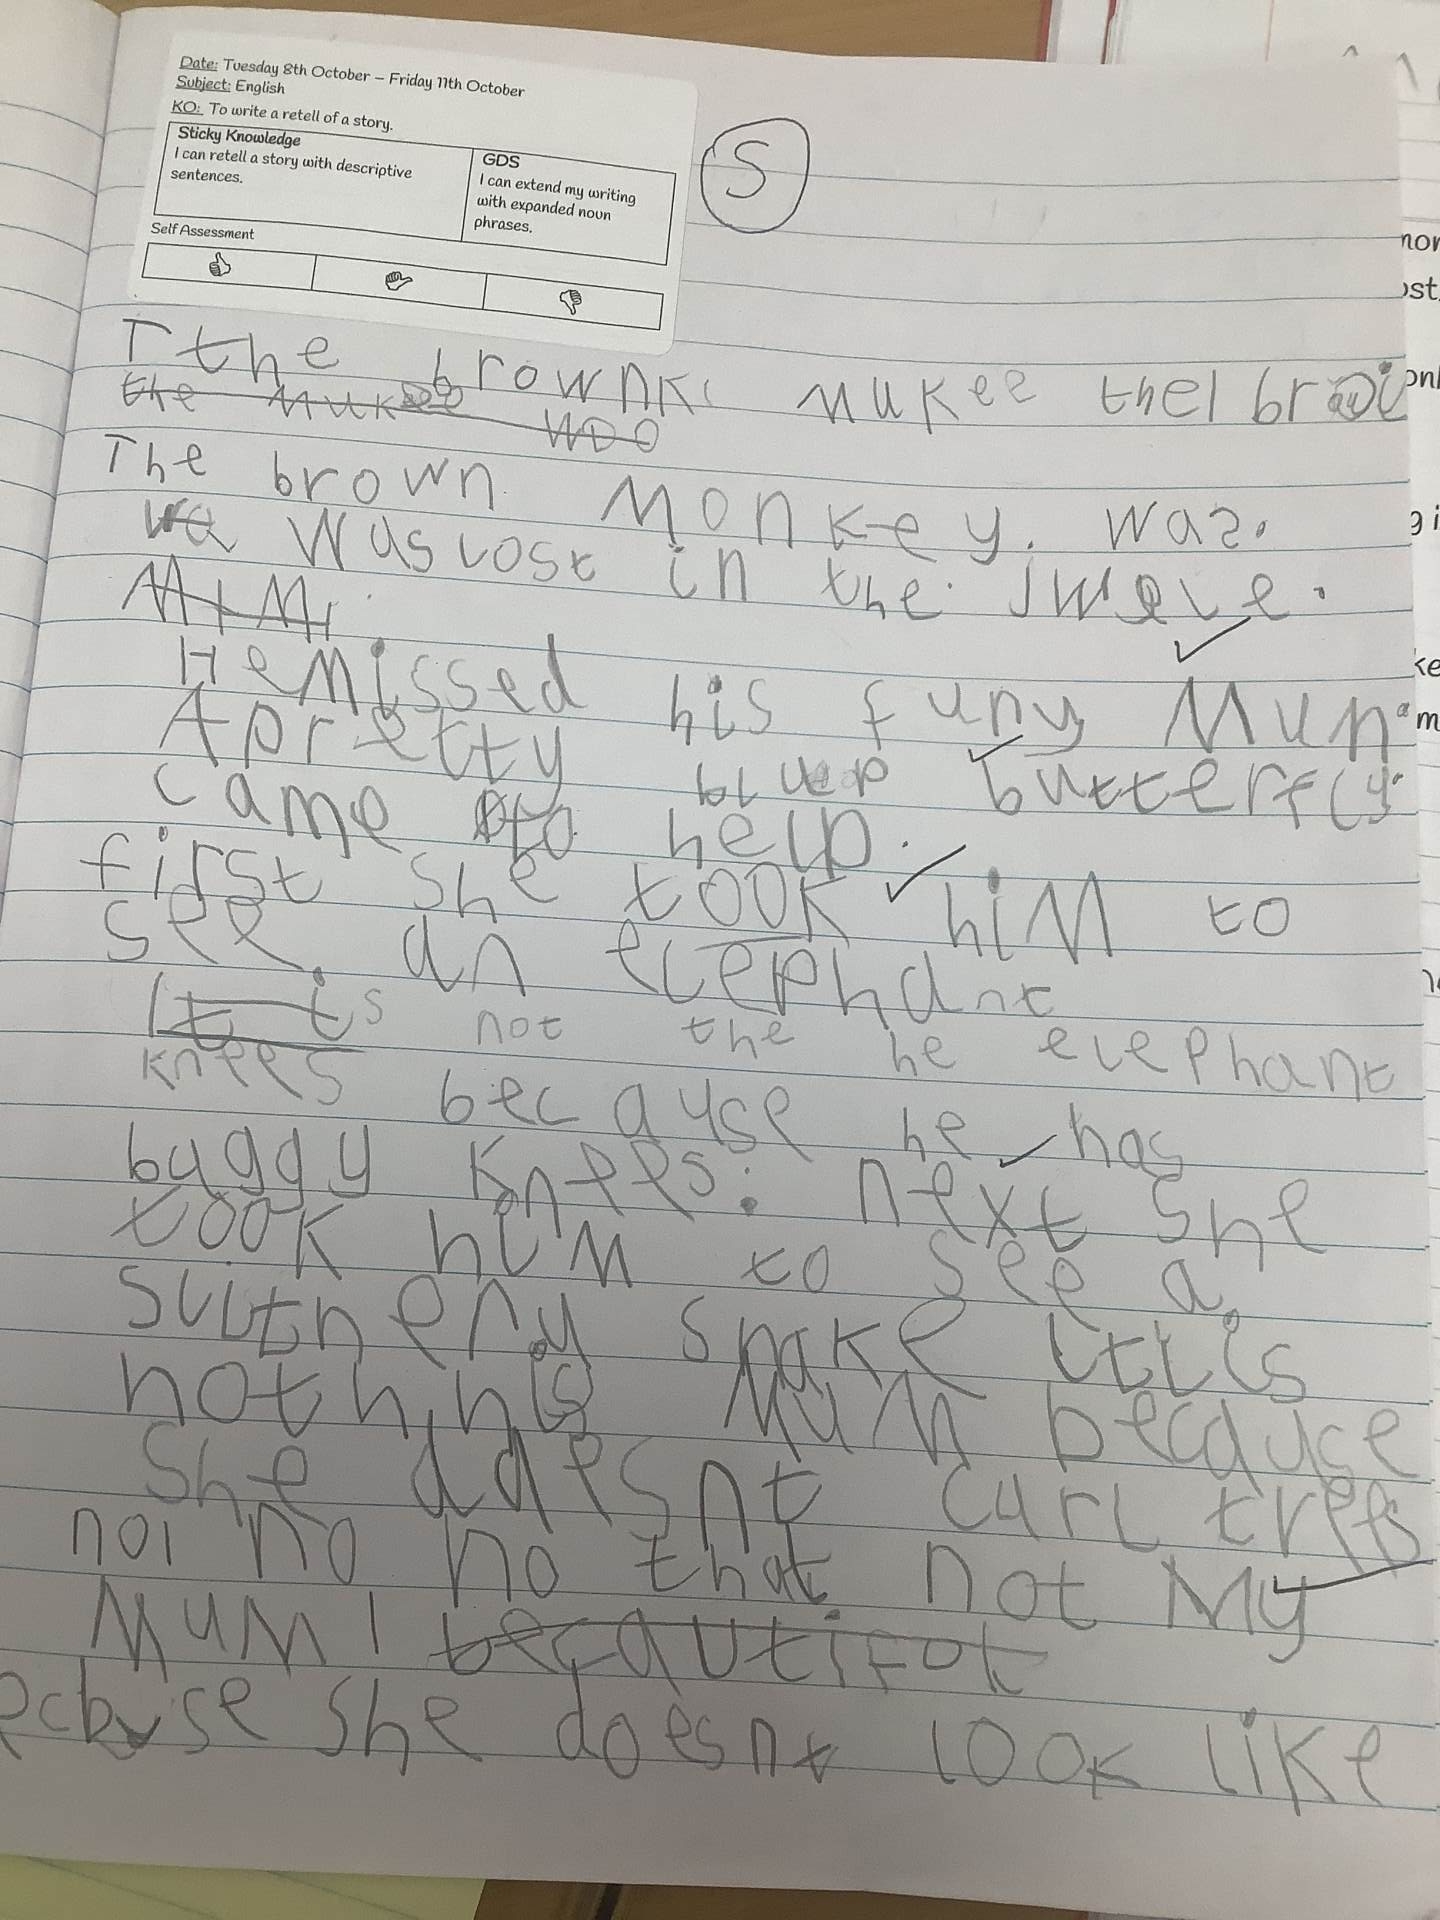 Date: Tuesday 8th October – Friday 11th October
Subject: English
KO: To write a retell of a story.
Sticky Knowledge
I can retell a story with descriptive
sentences.
GDS
I can extend my writing
with expanded noun
phrases.
Self Assessment
S
T the brownk mukee the
the mukee
The brown monkey. was.
wa was lost in the jwele.
He missed his funy Mun
A pretty bluep butterfly.
came to help.
first she took him to
see. an elephant
It is not the he elephant
knees because he has
baggy knees. next she
took him to see a
slithery snake it is
not his Mum because
she daesnt curl trees
no no no that not My
Mum! becautifot
because she doesnt look like